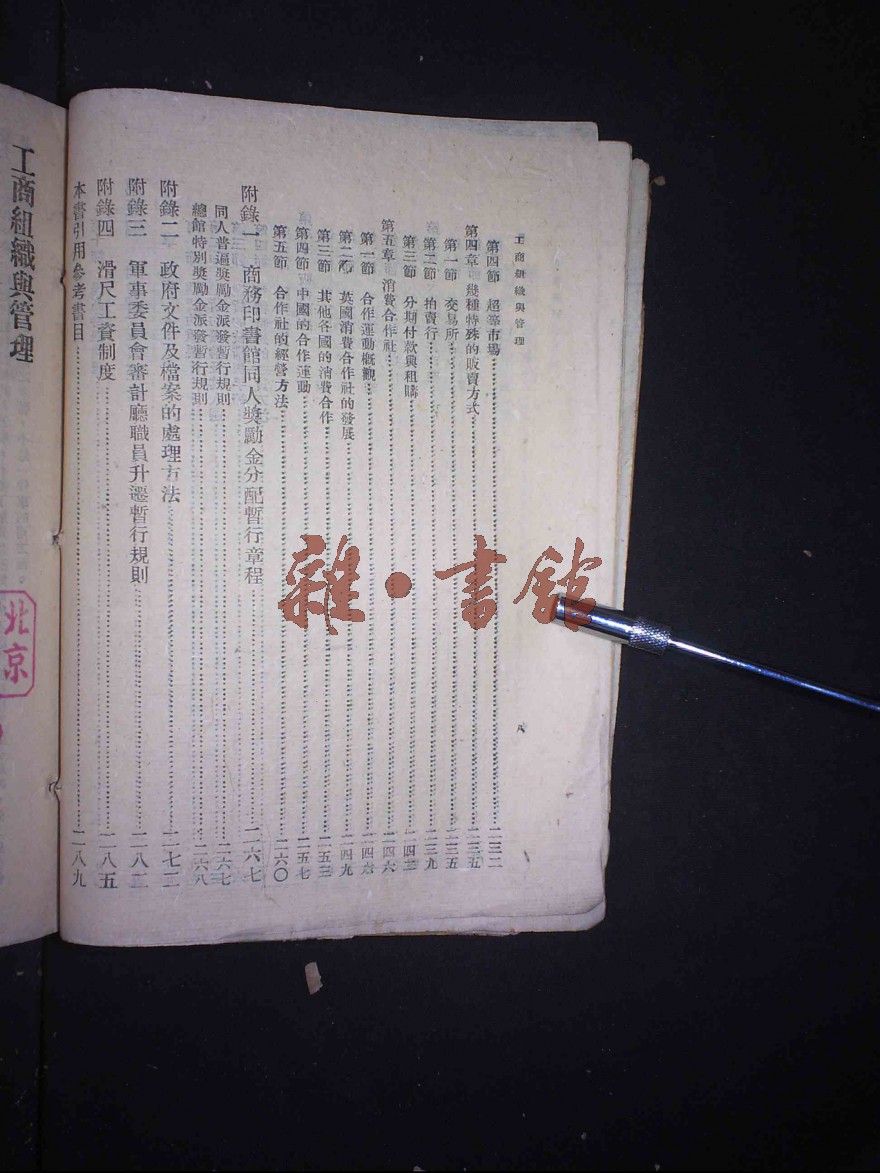 工商組織與管理
第四節　超等市場……二三二
第四章　幾種特殊的販賣方式……二三五
第一節　交易所……二三五
第二節　拍賣行……二三九
第三節　分期付款與租購……二四三
第五章　消費合作社……二四六
第一節　合作運動概觀……二四六
第二節　英國消費合作社的發展……二四九
第三節　其他各國的消費合作……二五三
第四節　中國的合作運動……二五七
第五節　合作社的經營方法……二六〇
附錄一　商務印書館同人獎勵金分配暫行章程……二六七
同人普遍獎勵金派發暫行規則……二六七
總館特別獎勵金派發暫行規則……二六八
附錄二　政府文件及檔案的處理方法……二七二
附錄三　軍事委員會審計廳職員升遷暫行規則……二八二
附錄四　滑尺工資制度……二八五
本書引用參考書目……二八九
八
工商組織與管理
北京
雜·書館